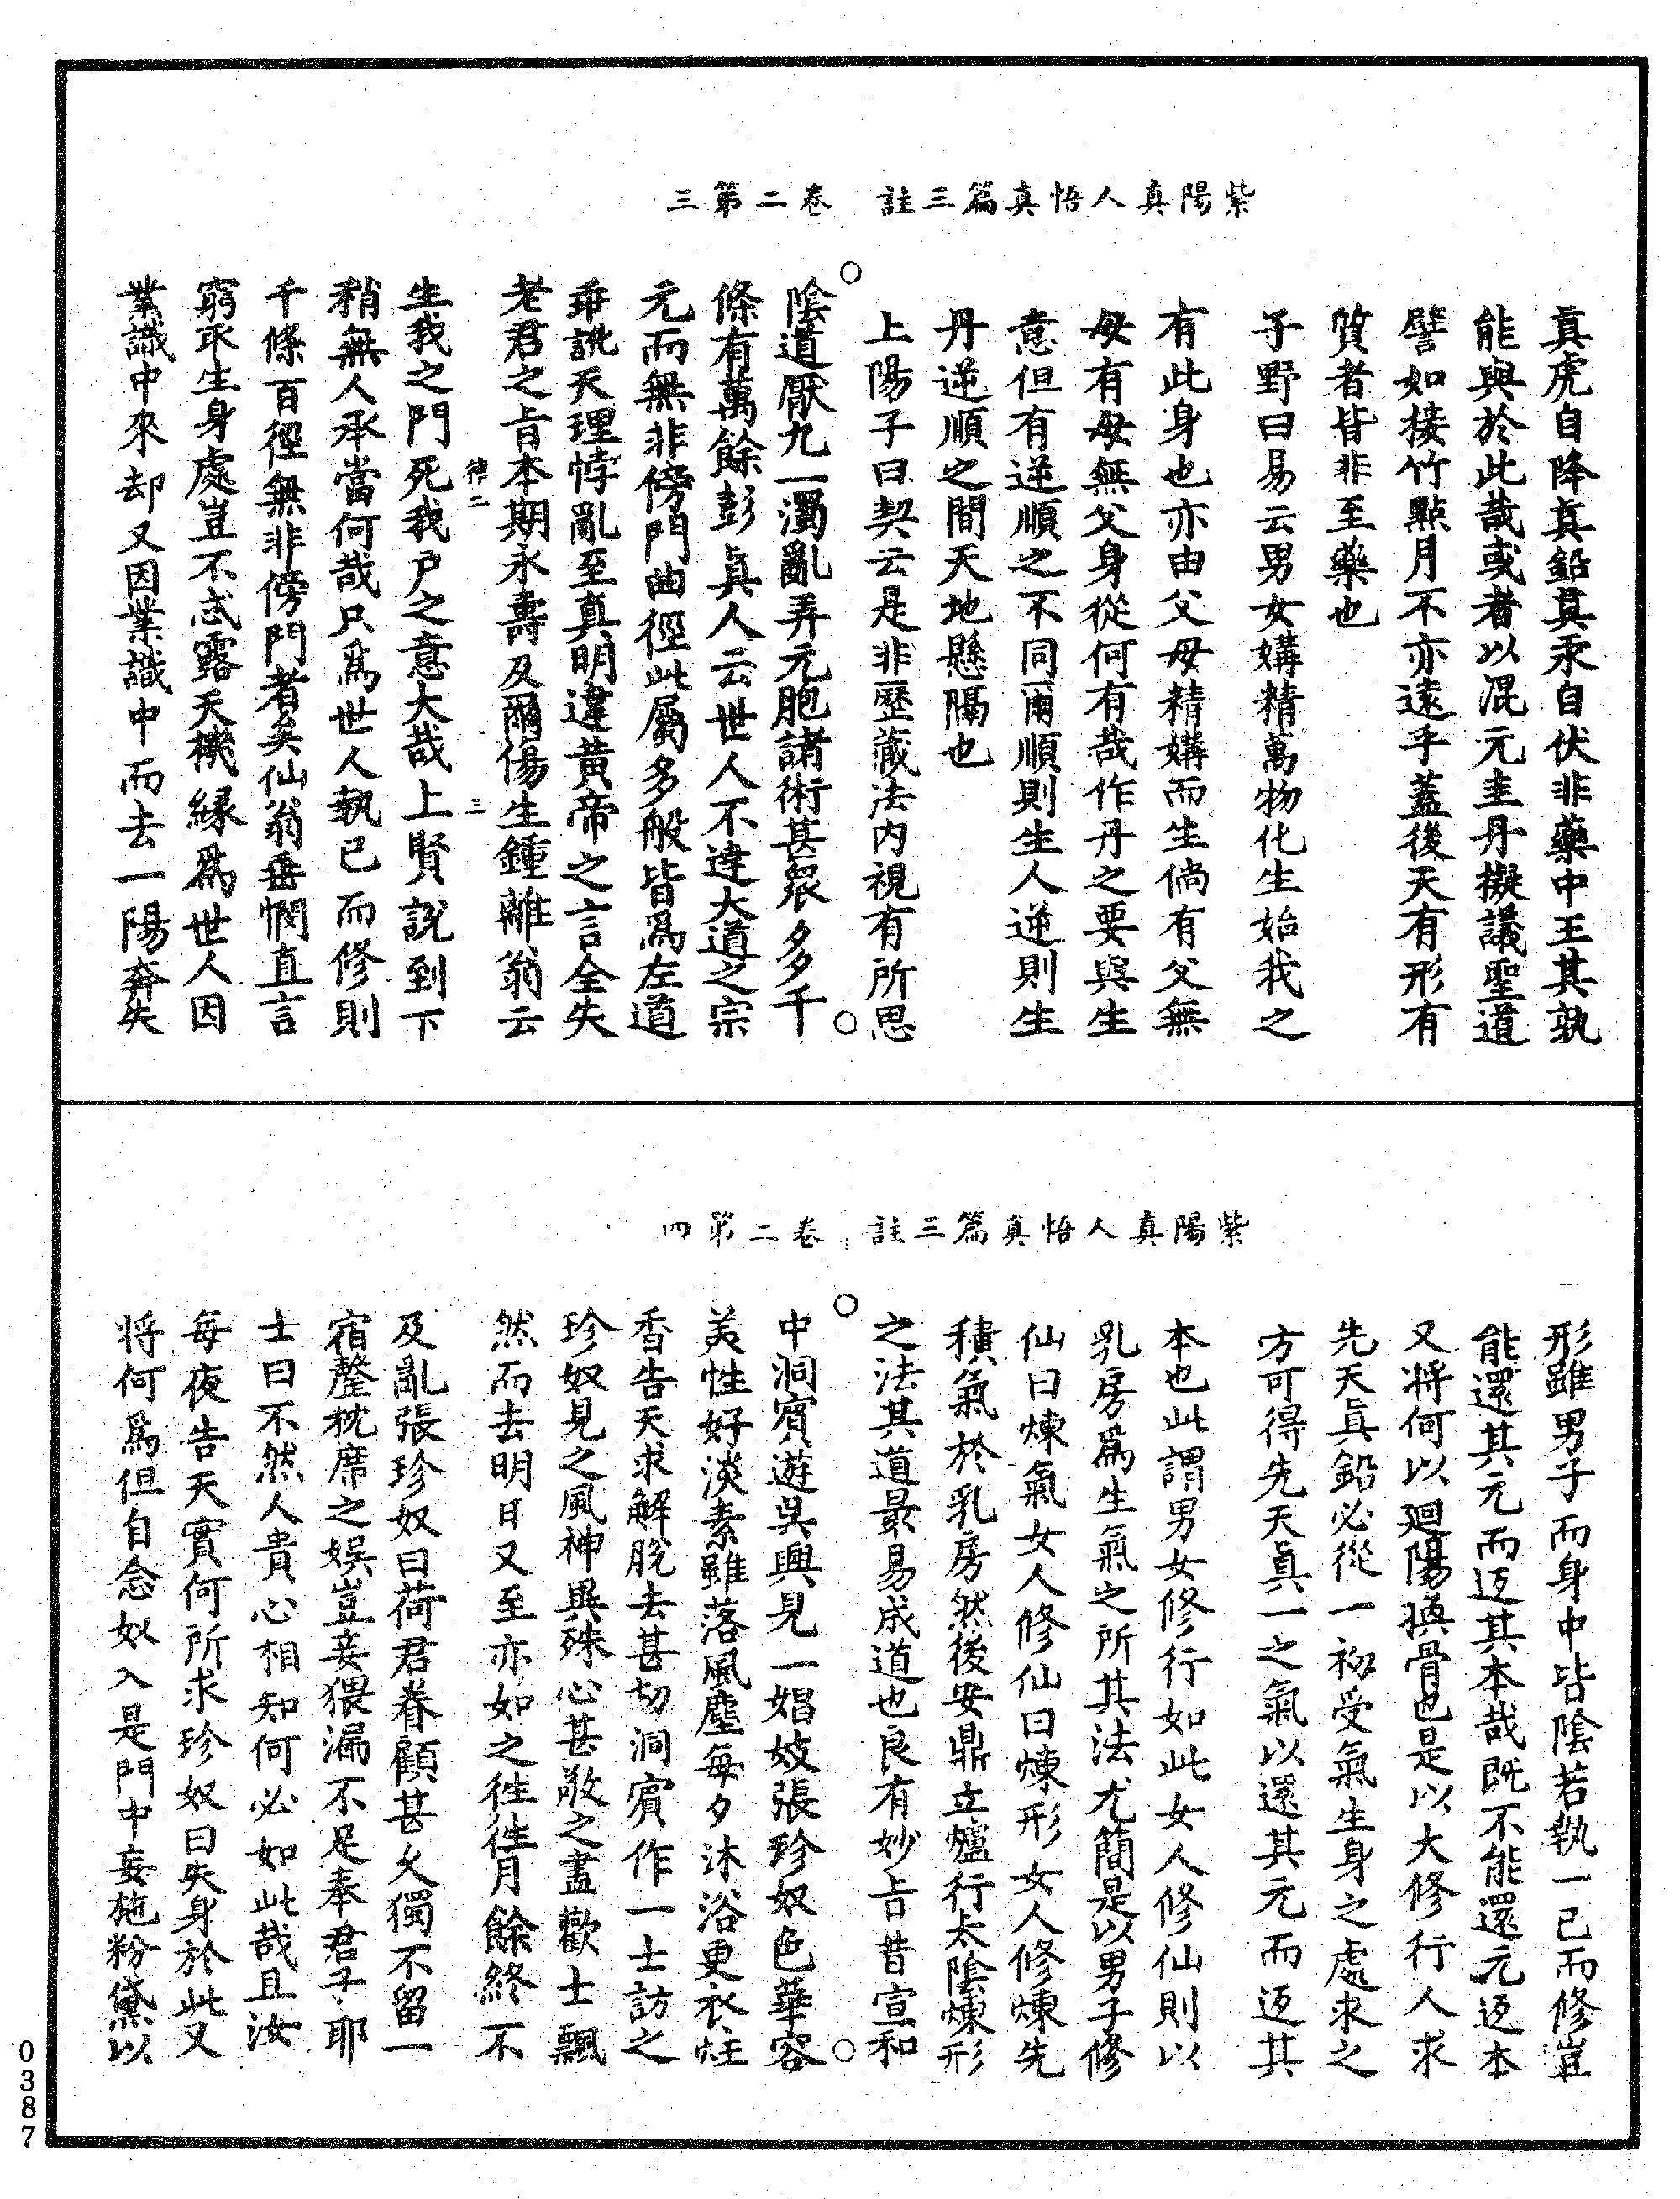 紫陽真人悟真篇三註 卷二第三
真虎自降真鉛真汞自伏非藥中王其孰
能與於此哉或者以混元圭丹擬議聖道
譬如接竹點月不亦遠乎蓋後天有形有
質者皆非至藥也
子野曰易云男女媾精萬物化生始我之
有此身也亦由父母精媾而生倘有父無
母有母無父身從何有哉作丹之要與生
意但有逆順之不同爾順則生人逆則生
丹逆順之間天地懸隔也
上陽子曰契云是非歷藏法內視有所思
陰道厭九一濁亂弄元胞諸術甚眾多千
條有萬餘彭真人云世人不達大道之宗
元而無非傍門曲徑此屬多般皆為左道
乖訛天理悖亂至真明違黃帝之言全失
老君之旨本期永壽反爾傷生鍾離翁云
律二 三
生我之門死我戶之意大哉上賢說到下
稍無人承當何哉只為世人執己而修則
千條百徑無非傍門者矣仙翁垂憫直言
窮取生身處豈不忒露天機緣為世人因
業識中來却又因業識中而去一陽奔失
紫陽真人悟真篇三註 卷二第四
形雖男子而身中皆陰若執一己而修豈
能還其元而返其本哉既不能還元返本
又將何以廻陽換骨也是以大修行人求
先天真鉛必從一初受氣生身之處求之
方可得先天真一之氣以還其元而返其
本也此謂男女修行如此女人修仙則以
乳房為生氣之所其法尤簡是以男子修
仙曰煉氣女人修仙曰煉形女人修煉先
積氣於乳房然後安鼎立爐行太陰煉形
之法其道最易成道也良有妙旨昔宣和
中洞賓遊吳興見一娼妓張珍奴色華容
美性好淡素雖落風塵每夕沐浴更衣炷
香告天求解脫去甚切洞賓作一士訪之
珍奴見之風神異殊心甚敬之盡歡士飄
然而去明日又至亦如之往往月餘終不
及亂張珍奴曰荷君眷顧甚久獨不留一
宿罄枕席之娛豈妾猥漏不足奉君子耶
士曰不然人貴心相知何必如此哉且汝
每夜告天實何所求珍奴曰失身於此又
將何為但自念奴入是門中妄施粉黛以
0387